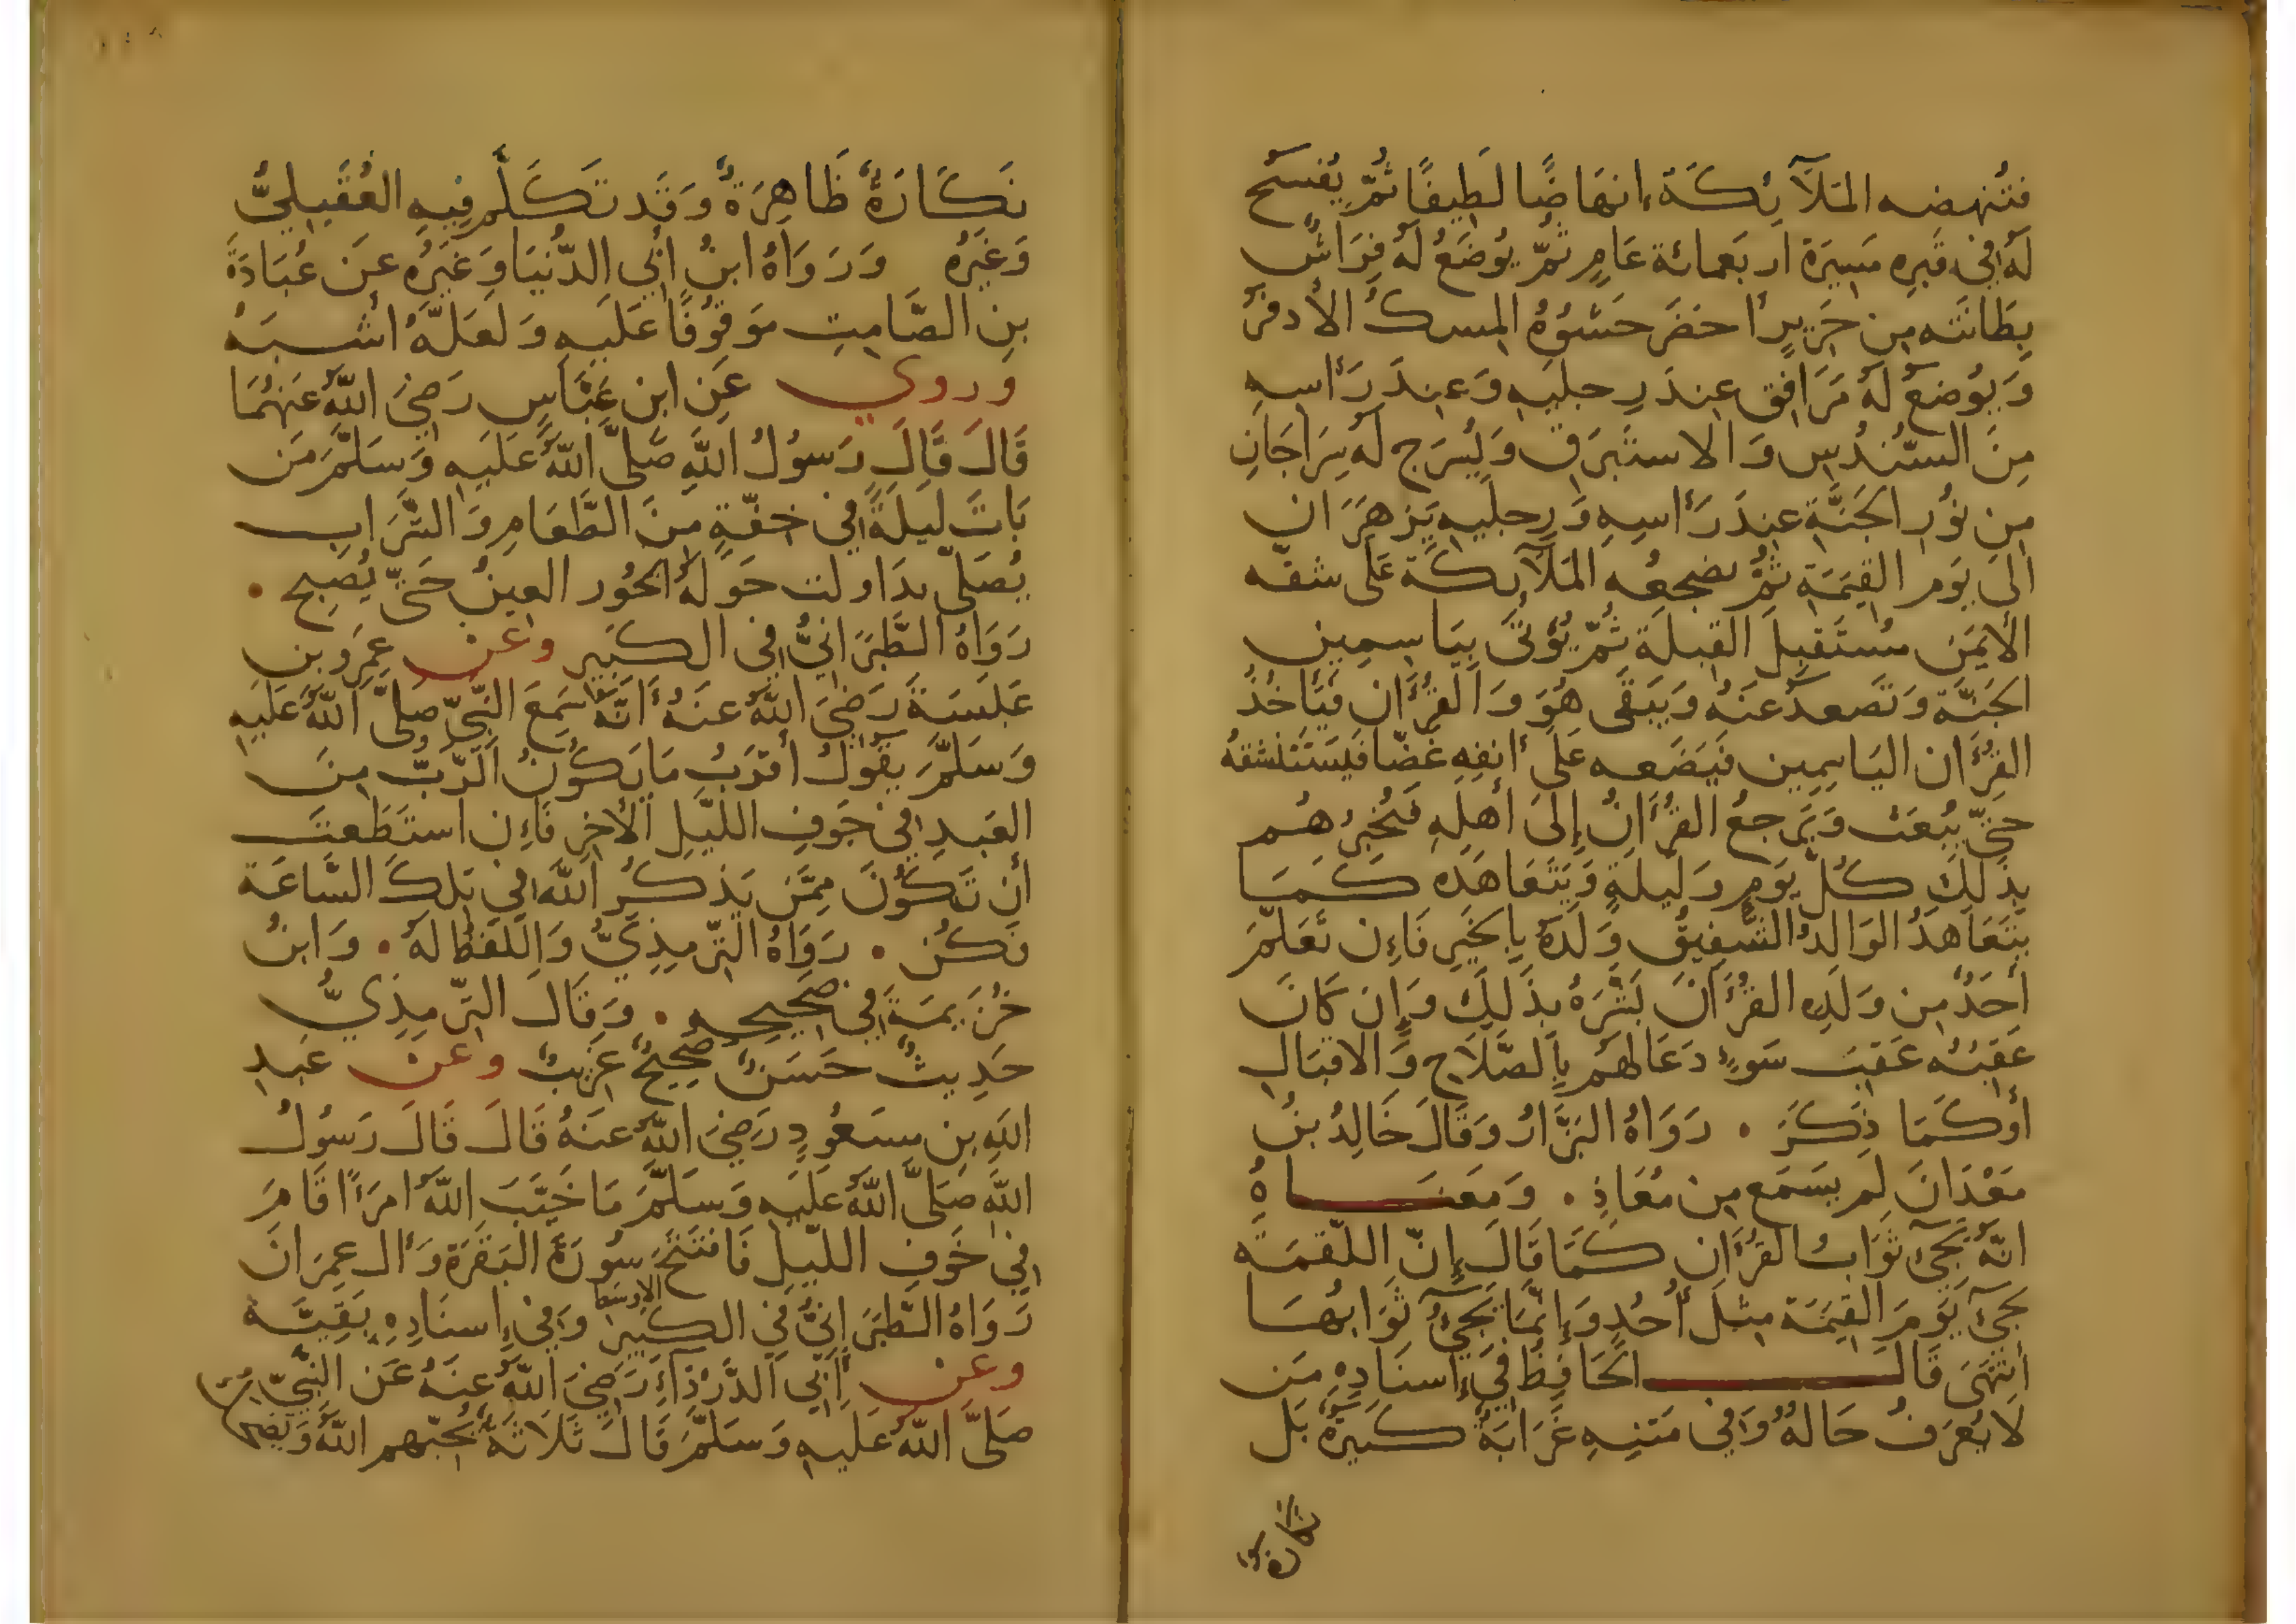 فتُنهضه المَلآئِكَة اِنهَاضًا لَطِيفًا ثُمَّ يُفسَح
لَهُ في قَبرِه مَسِيرَة اربَعمائة عَامٍ ثمَّ يُوضَعُ لَهُ فِرَاشٌ
بِطَانَتَه مِن حَرِيرٍ أخضَرَ حَشْوُهُ المِسكُ الأذفرُ
وَيُوضَعُ لَهُ مَرَافِق عِندَ رِجلَيهِ وَعِندَ رَأسِهِ
مِنَ السُّندُسِ وَالاستَبرَقِ وَيُسرَج لَهُ سِرَاجَانِ
مِن نُورِ الجَنَّةِ عِندَ رَأسِهِ وَرِجلَيهِ يَزهَرَانِ
اِلَى يَومِ القِيمَةِ ثُمَّ تضجِعُه المَلآئِكَة عَلَى شقّه
الأيمَن مُستَقبِلَ القِبلَة ثُمَّ يُؤتَى بِيَاسِمِينِ
الجَنَّة وَتَصعدُ عَنهُ وَيَبقَى هُوَ وَالقُرءَان فَيَأخُذُ
القُرءَان اليَاسِمِين فَيَضَعه عَلَى أنفِهِ غَضًّا فَيَستَنشقهُ
حَتَّى يُبعَث وَيَرجعُ القُرءَانُ إِلَى أهلِهِ فَيُخبِرُهُم
بِذَلِكَ كُلَّ يَومٍ وَلَيلَةٍ وَيَتَعَاهَدَه كَمَا
يَتَعَاهَدُ الوَالِدُ الشَّفِيقُ وَلَدَهُ بِالخَيرِ فَاءِن تَعَلَّمَ
أحَدٌ مِن وَلَدِهِ القُرءَانَ بَشَّرَهُ بِذَلِكَ وَإِن كَانَ
عَقِبُه عَقِبَ سَوءٍ دَعَا لَهُم بِالصَّلَاحِ وَالاقبَالِ
أوكَمَا ذَكَرَ . رَوَاهُ البَزَّارُ وَقَالَ خَالِدُ بنُ
مَعْدَانَ لَم يَسمَع مِن مُعَاذٍ . وَمَعنَاهُ
اَنَّهُ يَجِيءُ ثَوَابُ القُرءَانِ كَمَا قَالَ إِنَّ اللّقمَة
تَجِيءُ يَومَ القِيمَة مِثلَ أُحُدٍ وَإِنَّمَا يَجِيءُ ثَوَابُهَا
اَنتَهَى قَالَ الحَافِظُ فِي إِسنَادِهِ مَن
لَا يُعرَفُ حَالهُ وَفِي مَتنِهِ غَرَابَةٌ كَبِيرَةٌ بَل
نكارة
نَكَارَةٌ ظَاهِرَةٌ وَقَد تَكَلَّم فِيهِ العُقَيلِيُّ
وَغَيرُهُ وَرَوَاهُ ابنُ أبِي الدُّنيَا وَغَيرُهُ عَن عُبَادَةَ
بنِ الصَّامِتِ مَوقُوفًا عَلَيهِ وَلَعَلَّهُ أشبَهُ
وروي عَنِ ابنِ عَبَّاسٍ رَضِيَ اللّهُ عَنهُمَا
قَالَ قَالَ رَسُولُ اللّهِ صَلَّى اللّهُ عَلَيهِ وَسَلَّمَ مَن
بَاتَ لَيلَةً فِي خِفّةٍ مِنَ الطَّعَامِ وَالشَّرَابِ
يُصَلّي تدَاولت حَولَهُ الحُور العِينُ حَتَّى يُصبِح .
رَوَاهُ الطَّبَرَانِيُّ فِي الكَبِيرِ وعن عَمرِو بنِ
عَبَسَةَ رَضِيَ اللّهُ عَنهُ أَنَّهُ سَمِعَ النَّبِيَّ صَلَّى اللّهُ عَلَيهِ
وَسَلَّمَ يَقُولُ أقرَبُ مَا يَكُونُ الرَّبُّ مِنَ
العَبدِ فِي جَوفِ اللَّيلِ الأخِرِ فَاءِن استَطَعتَ
أن تَكُونَ مِمَّن يَذكُر اللّهَ فِي تِلكَ السَّاعَة
فَكُن . رَوَاهُ التِّرمِذِيُّ وَاللَّفظ لَهُ . وَابنُ
خُزَيمَةَ فِي صَحِيحِهِ . وَقَالَ التِّرمِذِيُّ
حَدِيثٌ حَسَنٌ صَحِيحٌ غَرِيبٌ وعن عَبدِ
اللّهِ بنِ مَسعُودٍ رَضِيَ اللّهُ عَنهُ قَالَ قَالَ رَسُولُ
اللّهِ صَلَّى اللّهُ عَلَيهِ وَسَلَّمَ مَا خَيَّبَ اللّهُ امرَاً قَامَ
فِي جَوفِ اللَّيلِ فَافتَتَحَ سُورَةَ البَقَرَة وَأل عِمرَانَ
رَوَاهُ الطَّبَرَانِيُّ فِي الكَبِير وَفِي إِسنَادِهِ بَقِيَّة
وعن أَبِي الدَّردَآءِ رَضِيَ اللّهُ عَنهُ عَن النَّبِيّ
صَلَّى اللّهُ عَلَيهِ وَسَلَّمَ قَالَ ثَلَاثَةٌ يُحِبّهم اللّهُ وَيضحك